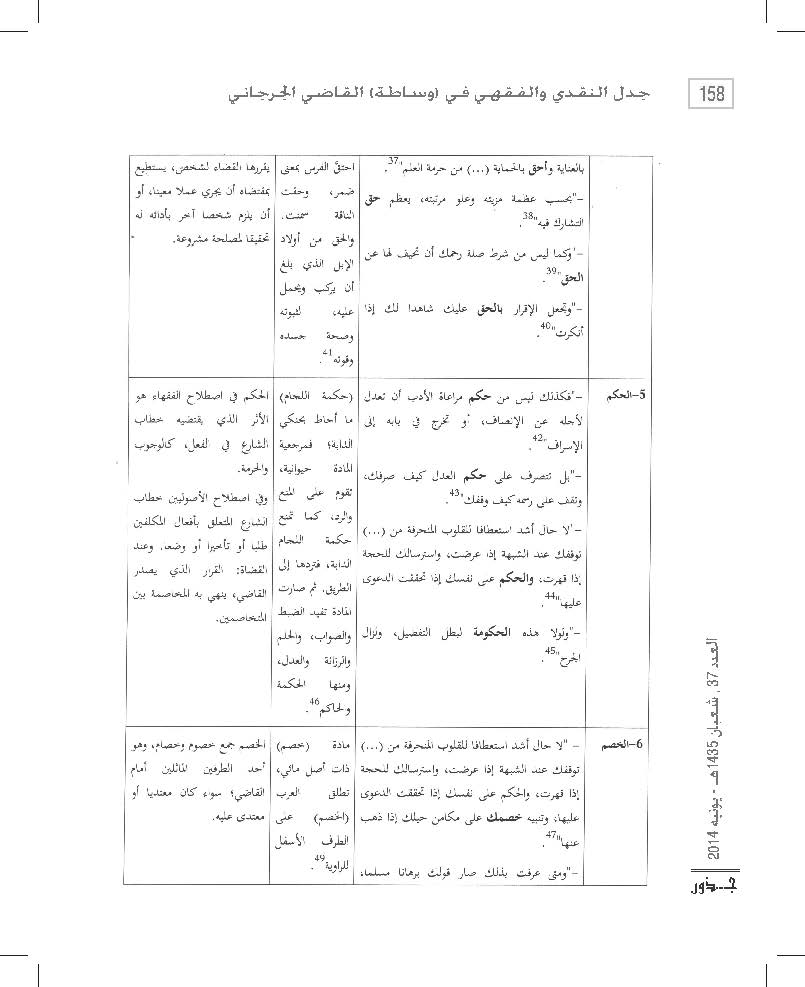 158
جدل النقدي والفقهي في (وساطة) القاضي الجرجاني
بالعناية وأحق بالحماية (...) من حرمة العلم"37.
–"بحسب عظمة مزيته وعلو مرتبته، يعظم حق
التشارك فيه"38.
–"وكما ليس من شرط صلة رحمك أن تحيف لها عن
الحق"39.
–"وتجعل الإقرار بالحق عليك شاهدا لك إذا
أنكرت"40.
احتقَّ الفرس بمعنى
ضمر، وحقت
الناقة سمنت.
والحق من أولاد
الإبل الذي بلغ
أن يركب ويحمل
عليه، لثبوته
وصحة جسده
وقوته41.
يقررها القضاء لشخص، يستطيع
بمقتضاه أن يجري عملا معينا، أو
أن يلزم شخصا آخر بأدائه له
تحقيقا لمصلحة مشروعة.
5–الحكم
–"فكذلك ليس من حكم مراعاة الأدب أن تعدل
لأجله عن الإنصاف، أو تخرج في بابه إلى
الإسراف"42.
–"بل تتصرف على حكم العدل كيف صرفك،
وتقف على رسمه كيف وقفك"43.
–"لا حال أشد استعطافا للقلوب المنحرفة من (...)
توقفك عند الشبهة إذا عرضت، واسترسالك للحجة
إذا قهرت، والحكم على نفسك إذا تحققت الدعوى
عليها"44.
–"ولولا هذه الحكومة لبطل التفضيل، ولزال
الجرح"45.
(حكمة اللجام)
ما أحاط بحنكي
الدابة؛ فمرجعية
المادة حيوانية،
تقوم على المنع
والرد، كما تمنع
حكمة اللجام
الدابة، فتردها إلى
الطريق. ثم صارت
المادة تفيد الضبط
والصواب، والحلم
والرزانة والعدل،
ومنها الحكمة
والحاكم46.
الحكم في اصطلاح الفقهاء هو
الأثر الذي يقتضيه خطاب
الشارع في الفعل، كالوجوب
والحرمة.
وفي اصطلاح الأصوليين خطاب
الشارع المتعلق بأفعال المكلفين
طلبا أو تأخيرا أو وضعا. وعند
القضاة: القرار الذي يصدر
القاضي، ينهي به المخاصمة بين
المتخاصمين.
6–الخصم
– "لا حال أشد استعطافا للقلوب المنحرفة من (...)
توقفك عند الشبهة إذا عرضت، واسترسالك للحجة
إذا قهرت، والحكم على نفسك إذا تحققت الدعوى
عليها، وتنبيه خصمك على مكامن حيلك إذا ذهب
عنها"47.
–"ومتى عرفت بذلك صار قولك برهانا مسلما،
مادة (خصم)
ذات أصل مائي،
تطلق العرب
(الخصم) على
الطرف الأسفل
للراوية49.
الخصم جمع خصوم وخصام، وهو
أحد الطرفين الماثلين أمام
القاضي؛ سواء كان معتديا أو
معتدى عليه.
العدد 37 , شعبان 1435هـ - يونيه 2014
جـذور